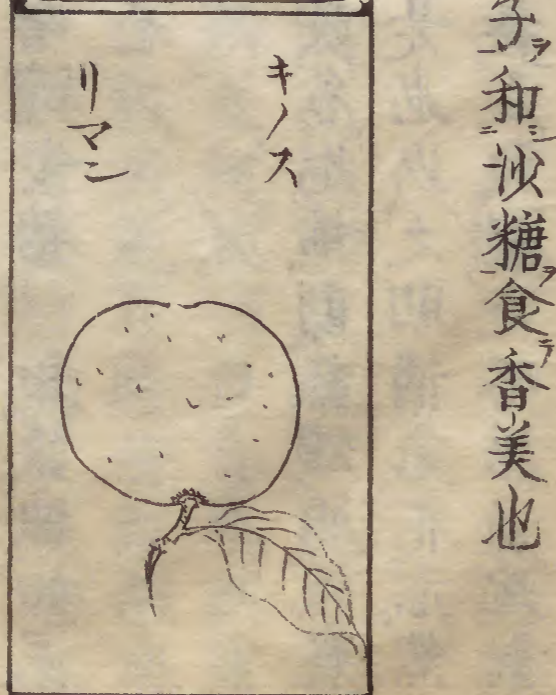 子ヲ和シ沙糖ヲ食テ香美也
キノス
リマン